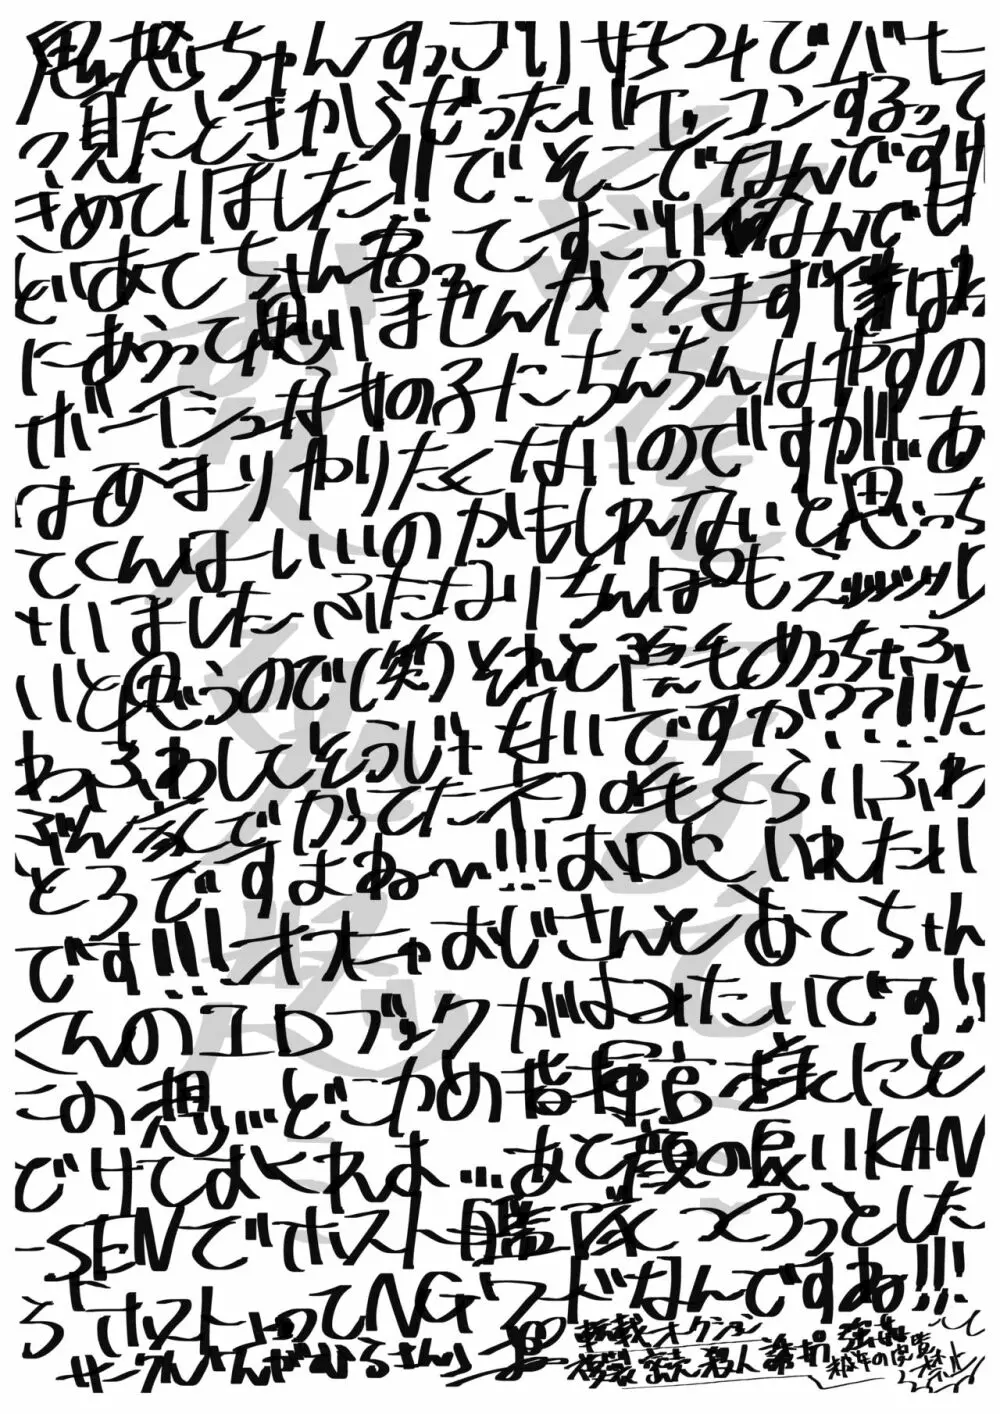 愚惑ちゃんすっごいせちつヤでバナー
っ見たときからぜったいケッコンするって
きめていました!!で、そこでなんですけ
どあてちゃん君ってすごい何なんでも
にあうって思いませんか??まず僕はわ
ボーイシュな女の子にちんちんはやすの
はあまりやりたくないのですが!!!あ
てくんはいいのかもしれないと思っち
ゃいました…ふたなりちんぽもズッッッリ
いと思うので(笑)それと陰毛めっちゃふ
わふわしてそうじゃないですか!??!!た
ぶん家でかってたネコの毛くらいふわ
とろですよね〜!!!おDKいれたい
です!!!オオチャおじさんとあてちゃん
くんのエロブックがはつばいです!!
この想いどこかの指揮官様にと
どけておくれよ…あと顔の良いKAN
-SENでホスト艦隊つくろっとした
らホストってNGワードなんですね!!!
サークルさんがいるさんら
転載オークション
複製 密売 殺人 誘拐 強姦
禁止